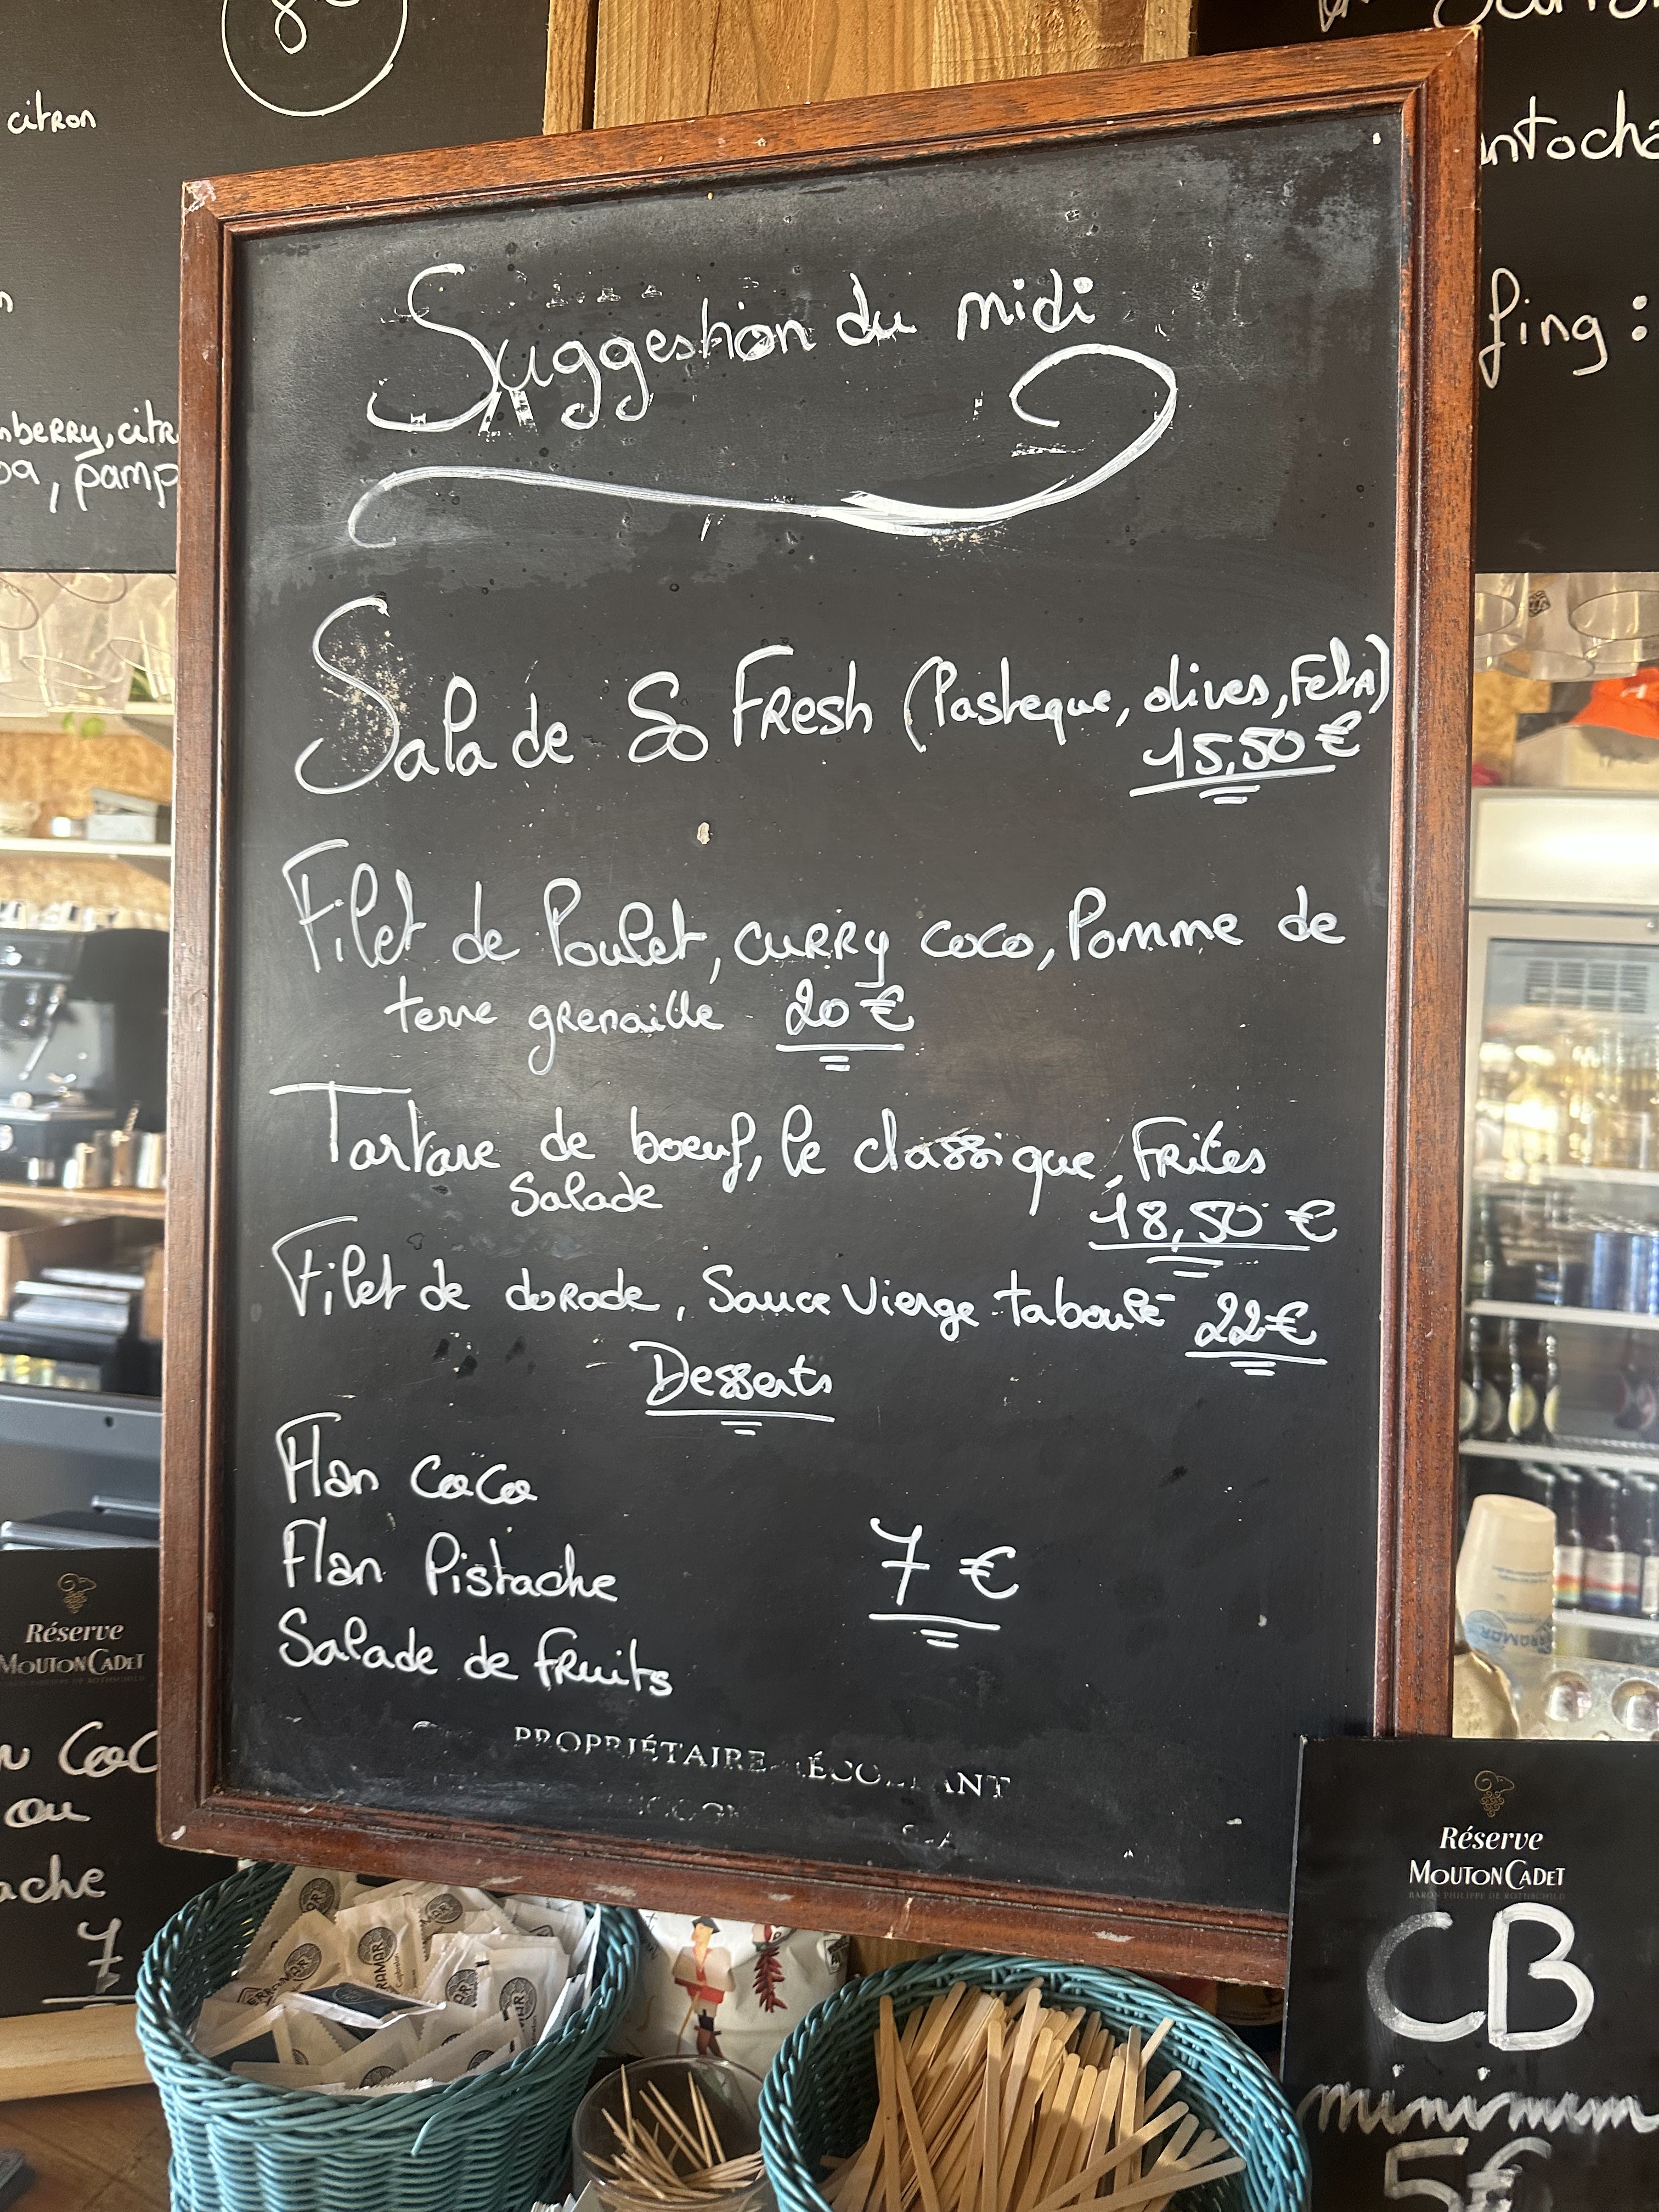 8
citron
nberry, citr
pa, pamp
ntocha
fing :
Suggestion du midi
Salade So Fresh (Pasteque, olives, Feta)
15,50 €
Filet de Poulet, curry coco, Pomme de
terre grenaille 20 €
Tartare de boeuf, le classique, Frites
Salade
18,50 €
Filet de dorade, Sauce Vierge taboulé 22 €
Desserts
Flan CoCo
Flan Pistache
7 €
Salade de fruits
PROPRIÉTAIRE
Réserve
MOUTON CADET
CoC
ou
ache
7
Réserve
MOUTON CADET
BARON PHILIPPE DE ROTHSCHILD
CB
minimum
5€